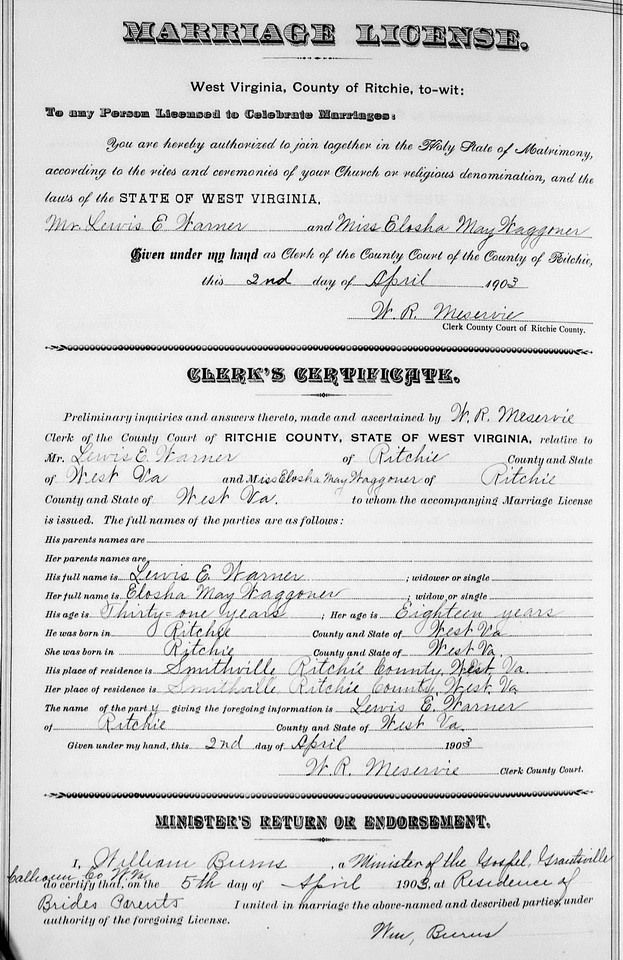 MARRIAGE LICENSE.
West Virginia, County of Ritchie, to-wit:
To any Person Licensed to Celebrate Marriages:
You are hereby authorized to join together in the Holy State of Matrimony,
according to the rites and ceremonies of your Church or religious denomination, and the
laws of the STATE OF WEST VIRGINIA,
Mr. Lewis E. Warner and Miss Elosha May Waggoner
Given under my hand as Clerk of the County Court of the County of Ritchie,
this 2nd day of April 1903
W. R. Meservie
Clerk County Court of Ritchie County.
CLERK'S CERTIFICATE.
Preliminary inquiries and answers thereto, made and ascertained by W. R. Meservie
Clerk of the County Court of RITCHIE COUNTY, STATE OF WEST VIRGINIA, relative to
Mr. Lewis E. Warner of Ritchie County and State
of West Va and Miss Elosha May Waggoner of Ritchie
County and State of West Va. to whom the accompanying Marriage License
is issued. The full names of the parties are as follows:
His parents names are
Her parents names are
His full name is Lewis E. Warner ; widower or single
Her full name is Elosha May Waggoner ; widow, or single
His age is Thirty-one years ; Her age is Eighteen years
He was born in Ritchie County and State of West Va
She was born in Ritchie County and State of West Va
His place of residence is Smithville Ritchie County, West, Va.
Her place of residence is Smithville, Ritchie County, West, Va
The name of the party giving the foregoing information is Lewis E. Warner
of Ritchie County and State of West Va.
Given under my hand, this 2nd day of April 1903
W. R. Meservie Clerk County Court.
MINISTER'S RETURN OR ENDORSEMENT.
I, William Burns, a Minister of the Gospel, Grantsville
Calhoun Co W. Va
do certify that, on the 5th day of April 1903, at Residence of
Brides Parents I united in marriage the above-named and described parties, under
authority of the foregoing License.
Wm, Burns